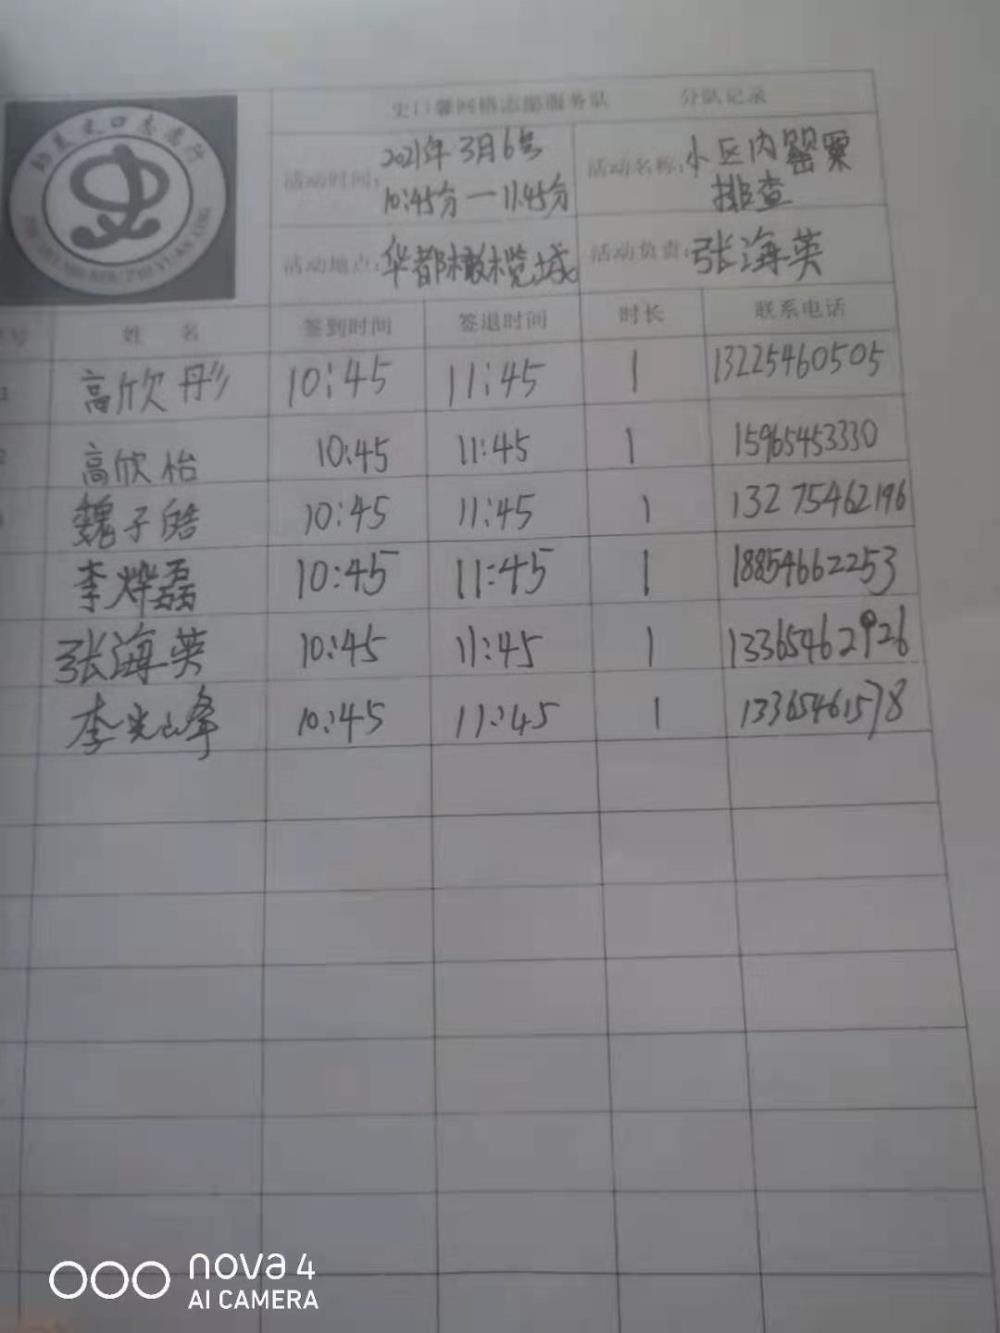 史口馨网格志愿服务队 分队记录
活动时间: 2021年3月6号
10:45分—11:45分
活动名称: 小区内罂粟
排查
活动地点: 华都橄榄城
活动负责: 张海英
号 姓 名 签到时间 签退时间 时长 联系电话
高欣彤 10:45 11:45 1 13225460505
2 高欣怡 10:45 11:45 1 15965453330
魏子皓 10:45 11:45 1 13275462196
李烨磊 10:45 11:45 1 18854662253
张海英 10:45 11:45 1 13365462926
李光峰 10:45 11:45 1 13365461578
nova 4
AI CAMERA